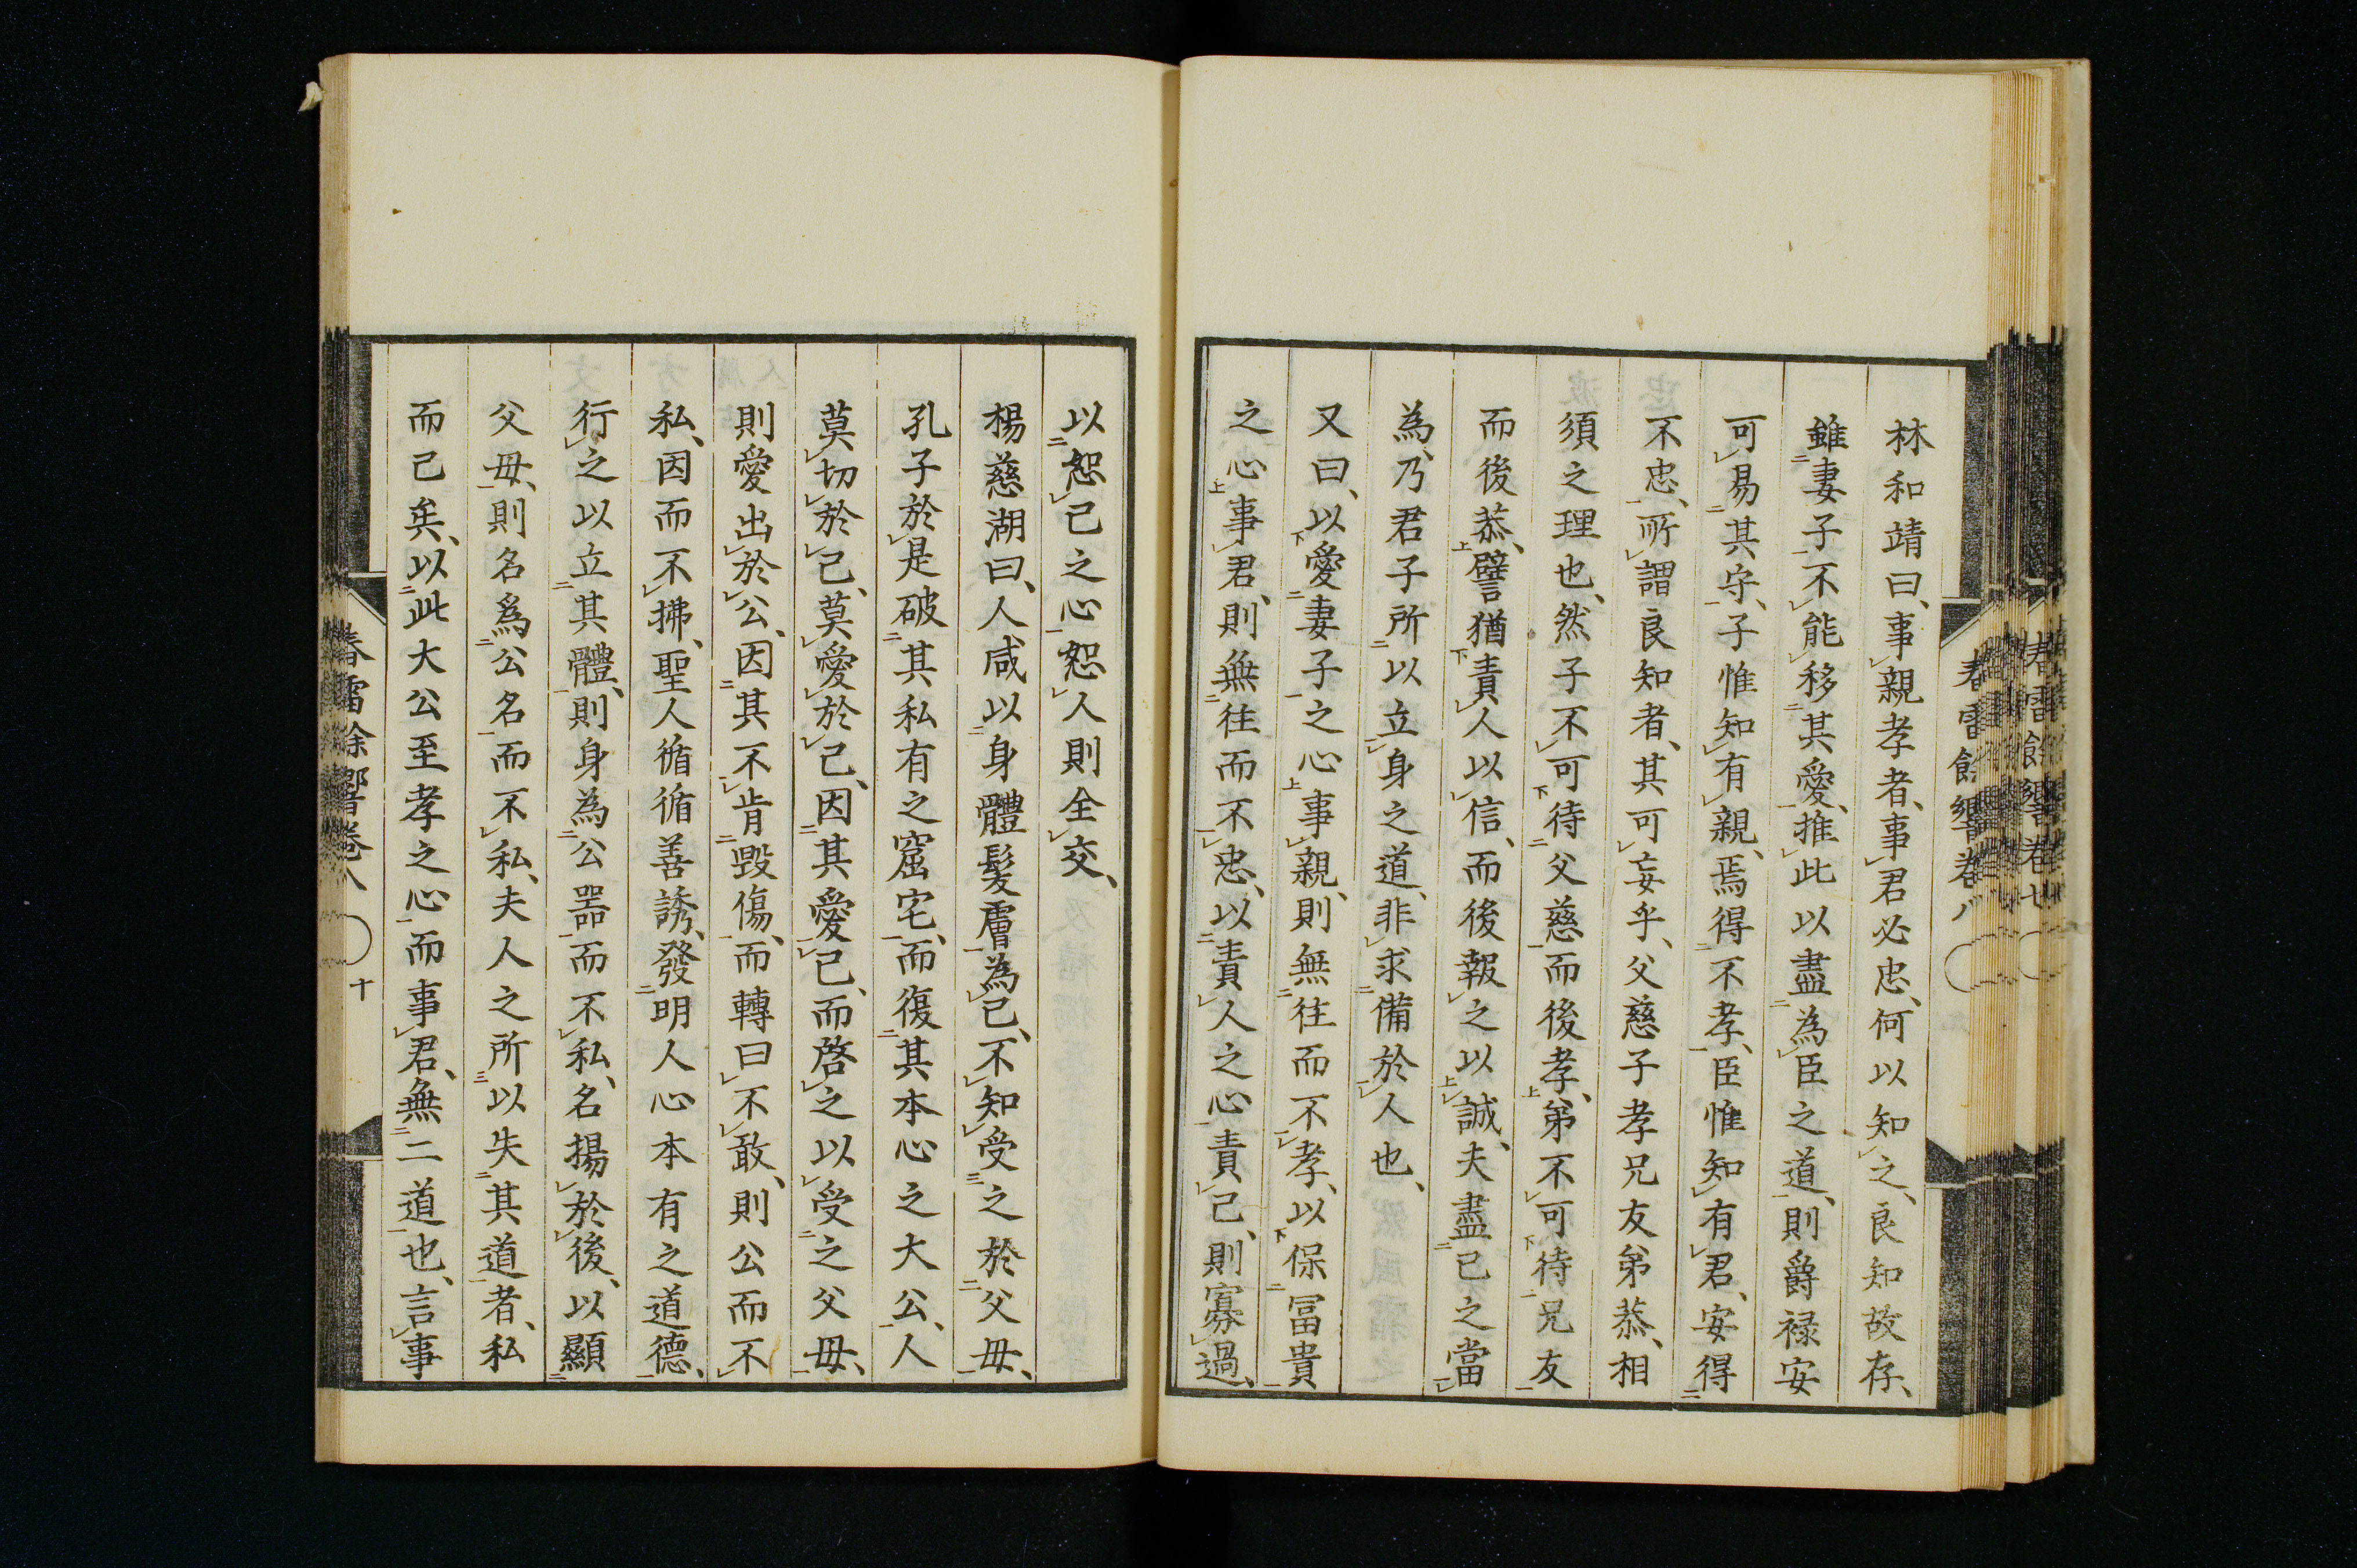 林和靖曰、事親孝者、事君必忠、何以知之、良知故存、
雖妻子不能移其愛、推此以盡為臣之道、則爵祿安
可易其守、子惟知有親、焉得不孝、臣惟知有君、安得
不忠、所謂良知者、其可妄乎、父慈子孝兄友弟恭、相
須之理也、然子不可待父慈而後孝、弟不可待兄友
而後恭、譬猶責人以信、而後報之以誠、夫盡己之當
為、乃君子所以立身之道、非求備於人也、
又曰、以愛妻子之心事親、則無往而不孝、以保冨貴
之心事君、則無往而不忠、以責人之心責己、則寡過、
以恕己之心恕人則全交、
楊慈湖曰、人咸以身體髮膚為己、不知受之於父母、
孔子於是破其私有之窟宅、而復其本心之大公、人
莫切於己、莫愛於己、因其愛己、而啓之以受之父母、
則愛出於公、因其不肯毀傷、而轉曰不敢、則公而不
私、因而不拂、聖人循循善誘、發明人心本有之道德、
行之以立其體、則身為公器而不私、名揚於後、以顯
父母、則名爲公名而不私、夫人之所以失其道者、私
而已矣、以此大公至孝之心而事君、無二道也、言事
春雷餘響卷八 十